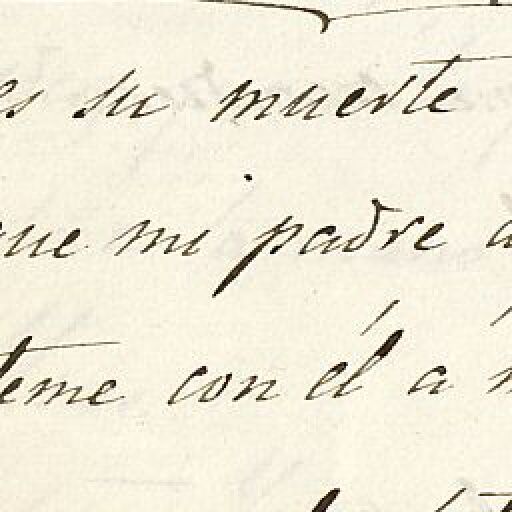 es su muerte
que mi padre
teme con él a